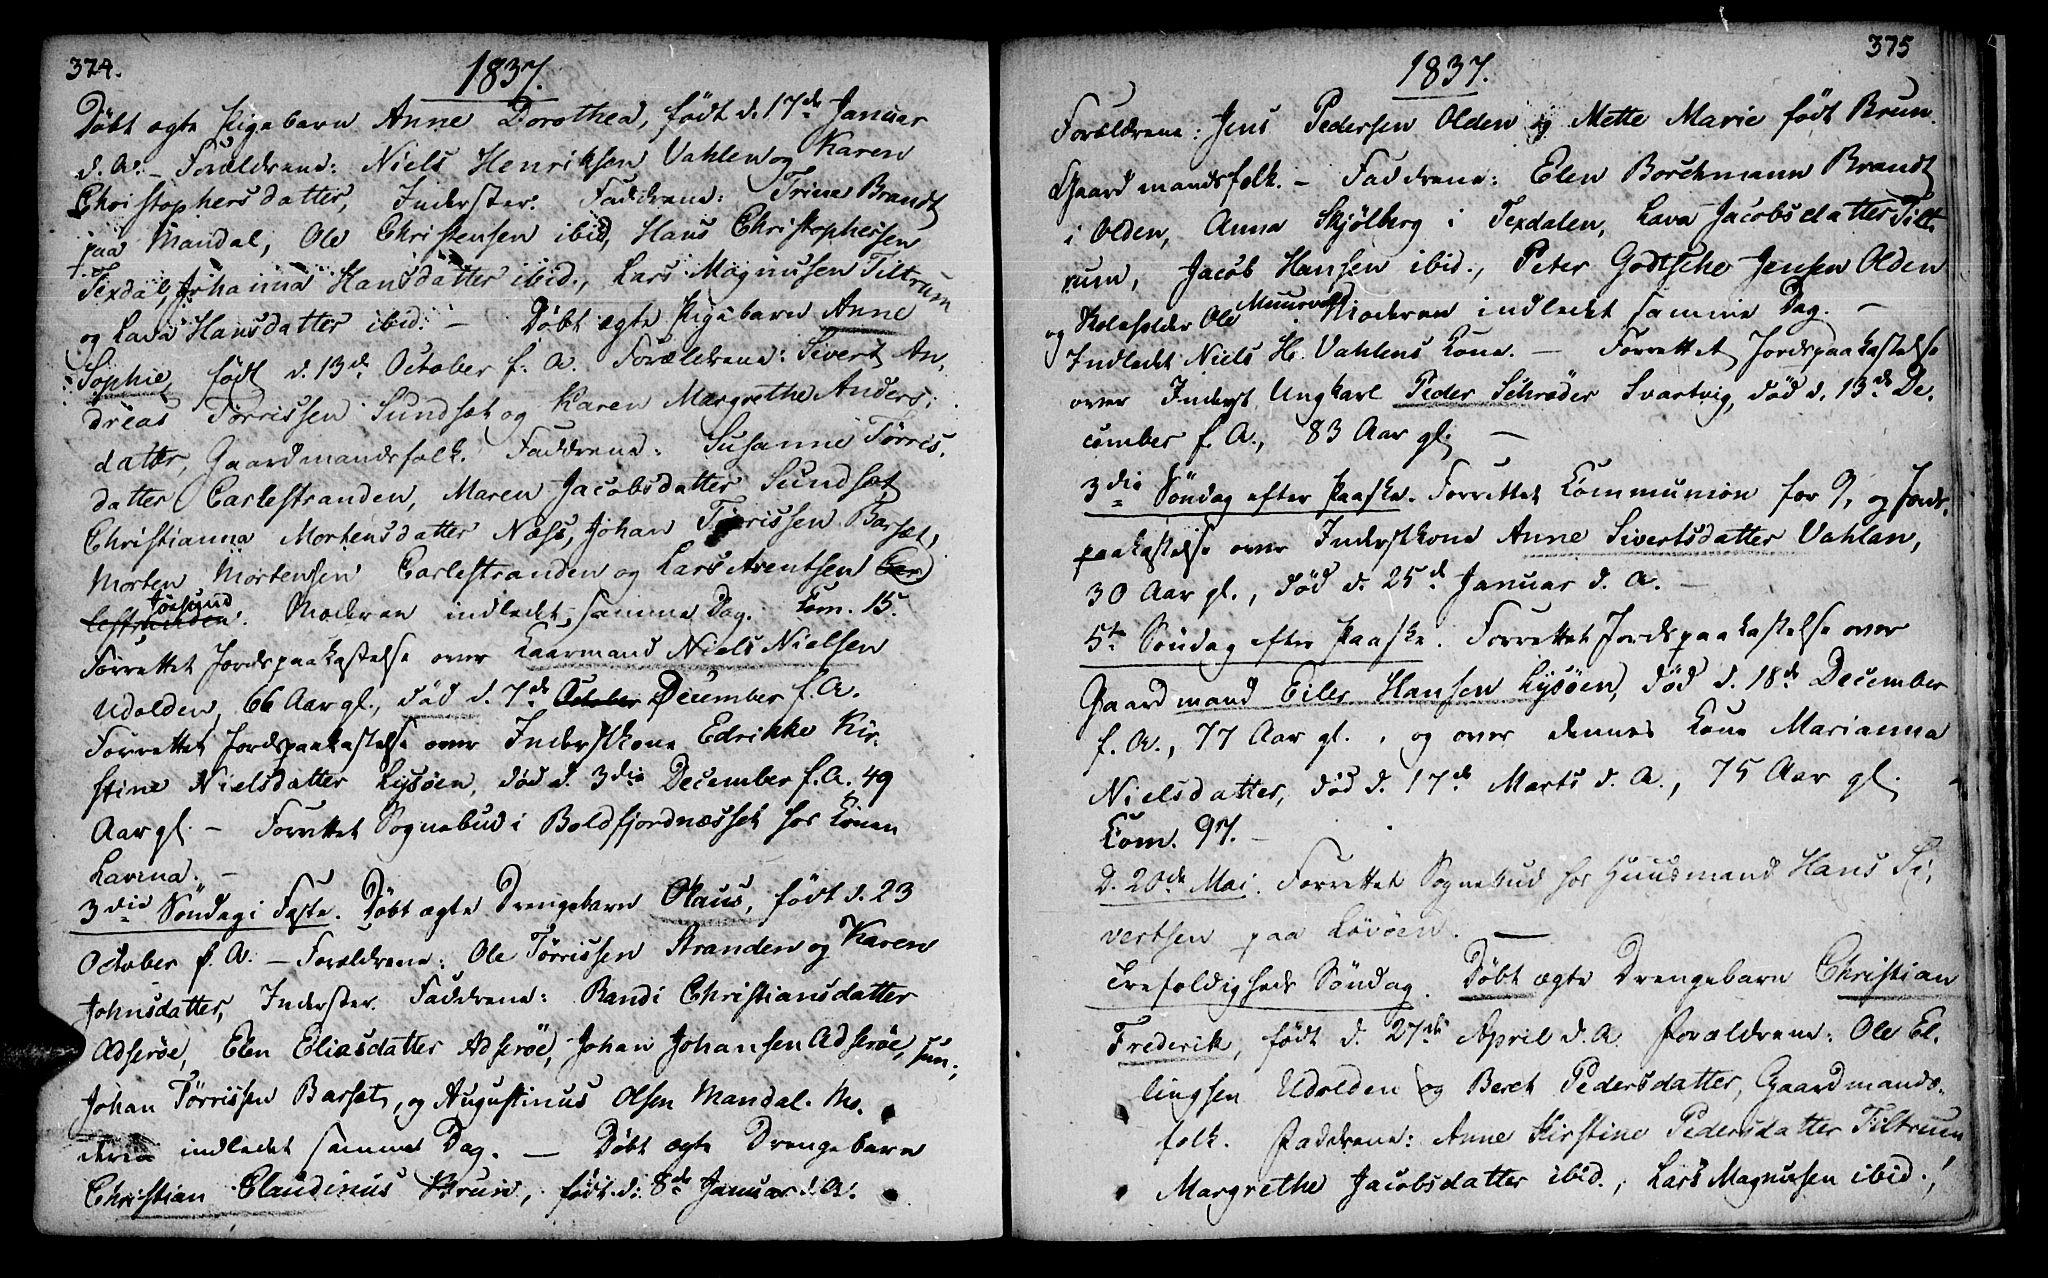 374.
1837.
Döbt ægte Pigebarn Anne Dorothea, født d. 17de Januar
d. A. – Forældrene: Niels Henriksen Vahlen og Karen
Christophersdatter, Inderster. Faddrene: Trine Brandt
paa Mandal, Ole Christensen ibid, Hans Christophersen
Texdal, Johanna Hansdatter ibid., Lars Magnusen Tiltrum
og Lava Hansdatter ibid. – Döbt ægte Pigebarn Anne
Sophie, født d. 13de October f. A. Forældrene: Sivert An,
dreas Törrissen Sundset og Karen Margrethe Anders,
datter, Gaardmandsfolk. Faddrene: Susanne Törris,
datter Carlestranden, Maren Jacobsdatter Sundset,
Christianna Mortensdatter Næss, Johan Törrissen Barset,
Morten Mortensen Carlestranden og Lars Arentsen Car
lestranden Jössund. Moderen indledet samme Dag. Com. 15.
Forrettet Jordspaakastelse over Kaarmand Niels Nielsen
Udolden, 66 Aar gl., død d. 7de October December f. A.
Forrettet Jordspaakastelse over Inderstkone Edrikke Kir,
stine Nielsdatter Lysöen, død d. 3die December f. A. 49
Aar gl. – Forrettet Sognebud i Boldfjordnæsset hos Konen
Lavina. –
3die Söndag i Faste. Döbt ægte Drengebarn Olaus, født d. 23
October f. A. – Forældrene: Ole Törrissen Stranden og Karen
Johnsdatter, Inderster. Faddrene: Randi Christiansdatter
Adseröe, Elen Eliasdatter Adseröe, Johan Johansen Adseröe, sen,
Johan Törrissen Barset, og Augustinus Olsen Mandal. Mo,
deren indledet samme Dag. – Döbt ægte Drengebarn
Christian Claudinus Brun, født d. 8de Januar d. A.
375
1837.
Forældrene: Jens Pedersen Olden og Mette Marie født Brun.
Gaardmandsfolk. – Faddrene: Elen Borchmann Brandt
i Olden, Anna Skjölberg i Texdalen, Lava Jacobsdatter Tilt,
rum, Jacob Hansen ibid., Peter Godtsche Jensen Olden
og Skoleholder Ole Muurvig. Moderen indledet samme Dag. –
Indledet Niels H. Vahlens Kone. – Forrettet Jordspaakastelse
over Inderst Ungkarl Peder Schröder Svartvig, død d. 13de De,
cember f. A., 83 Aar gl. –
3die Söndag efter Paaske. Forrettet Communion for 9, og Jords,
paakastelse over Inderstkone Anne Sivertsdatter Vahlen,
30 Aar gl., død d. 25de Januar d. A. –
5te Söndag efter Paaske. Forrettet Jordspaakastelse over
Gaardmand Eiler Hansen Lysöen, død d. 18de December
f. A., 77 Aar gl., og over dennes Kone Marianna
Nielsdatter, død d. 17de Marts d. A., 75 Aar gl.
Com. 97. –
D. 20de Mai. Forrettet Sognebud hos Huusmand Hans Si,
vertsen paa Lövöen. –
Trefoldigheds Söndag. Döbt ægte Drengebarn Christian
Frederik, født d. 27de April d. A. Forældrene: Ole El,
lingsen Udolden og Beret Pedersdatter, Gaardmands,
folk. Faddrene: Anne Kirstine Pedersdatter Tiltrum
Margrethe Jacobsdatter ibid., Lars Magnusen ibid.,